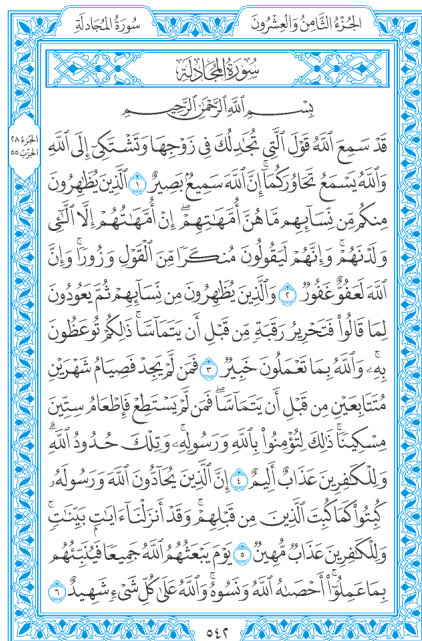 الجزء الثامن والعشرون
سورة المجادلة
سورة المجادلة
بسم الله الرحمن الرحيم
الجزء ٢٨
الحزب ٥٥
قَدْ سَمِعَ ٱللَّهُ قَوْلَ ٱلَّتِي تُجَٰدِلُكَ فِي زَوْجِهَا وَتَشْتَكِيٓ إِلَى ٱللَّهِ
وَٱللَّهُ يَسْمَعُ تَحَاوُرَكُمَآ إِنَّ ٱللَّهَ سَمِيعٌۢ بَصِيرٌ ١ ٱلَّذِينَ يُظَٰهِرُونَ
مِنكُم مِّن نِّسَآئِهِم مَّا هُنَّ أُمَّهَٰتِهِمْ إِنْ أُمَّهَٰتُهُمْ إِلَّا ٱلَّٰٓـِٔي
وَلَدْنَهُمْ وَإِنَّهُمْ لَيَقُولُونَ مُنكَرًا مِّنَ ٱلْقَوْلِ وَزُورًا وَإِنَّ
ٱللَّهَ لَعَفُوٌّ غَفُورٌ ٢ وَٱلَّذِينَ يُظَٰهِرُونَ مِن نِّسَآئِهِمْ ثُمَّ يَعُودُونَ
لِمَا قَالُوا۟ فَتَحْرِيرُ رَقَبَةٍ مِّن قَبْلِ أَن يَتَمَآسَّا ذَٰلِكُمْ تُوعَظُونَ
بِهِۦ وَٱللَّهُ بِمَا تَعْمَلُونَ خَبِيرٌ ٣ فَمَن لَّمْ يَجِدْ فَصِيَامُ شَهْرَيْنِ
مُتَتَابِعَيْنِ مِن قَبْلِ أَن يَتَمَآسَّا فَمَن لَّمْ يَسْتَطِعْ فَإِطْعَامُ سِتِّينَ
مِسْكِينًا ذَٰلِكَ لِتُؤْمِنُوا۟ بِٱللَّهِ وَرَسُولِهِۦ وَتِلْكَ حُدُودُ ٱللَّهِ
وَلِلْكَٰفِرِينَ عَذَابٌ أَلِيمٌ ٤ إِنَّ ٱلَّذِينَ يُحَآدُّونَ ٱللَّهَ وَرَسُولَهُۥ
كُبِتُوا۟ كَمَا كُبِتَ ٱلَّذِينَ مِن قَبْلِهِمْ وَقَدْ أَنزَلْنَآ ءَايَٰتٍۭ بَيِّنَٰتٍ
وَلِلْكَٰفِرِينَ عَذَابٌ مُّهِينٌ ٥ يَوْمَ يَبْعَثُهُمُ ٱللَّهُ جَمِيعًا فَيُنَبِّئُهُم
بِمَا عَمِلُوٓا۟ أَحْصَىٰهُ ٱللَّهُ وَنَسُوهُ وَٱللَّهُ عَلَىٰ كُلِّ شَيْءٍ شَهِيدٌ ٦
٥٤٢